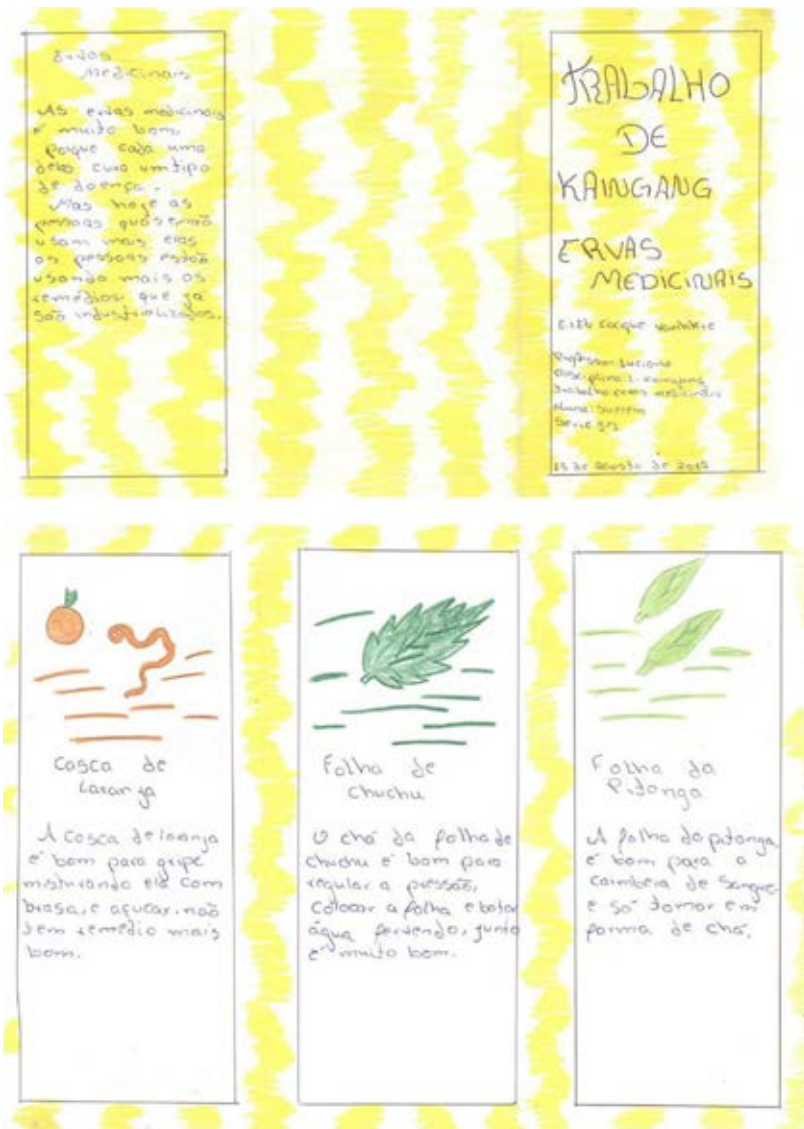 Ervas
Medicinais
As ervas medicinais
é muito bom,
porque cada uma
delas cura um tipo
de doença.
Mas hoje as
pessoas quase não
usam mais elas
as pessoas estão
usando mais os
remédios que ja
são industrializados.
TRABALHO
DE
KAINGANG
ERVAS
MEDICINAIS
Professor: Luciano
Disciplina: L. Kaingang
Trabalho ervas medicinais
Aluna:
Serie:
de agosto de
Casca de
Laranja
A casca de laranja
é bom para gripe
misturando ela com
brasa, e açucar, não
tem remédio mais
bom.
Folha de
chuchu
O chá da folha de
chuchu é bom para
regular a pressão,
Colocar a folha e botar
água fervendo, junto
é muito bom.
Folha da
Pitanga
A folha da pitanga
é bom para a
caimbeia de sangue
e só tomar em
forma de chá.